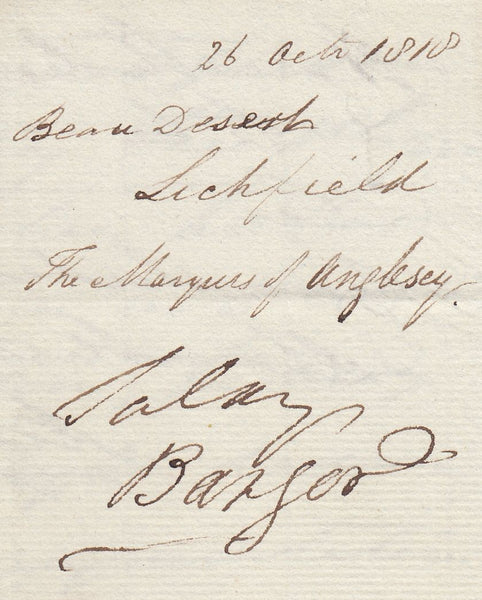 26 Octr 1818
Beau Desert
Lichfield
The Marquis of Anglesey.
Bangor